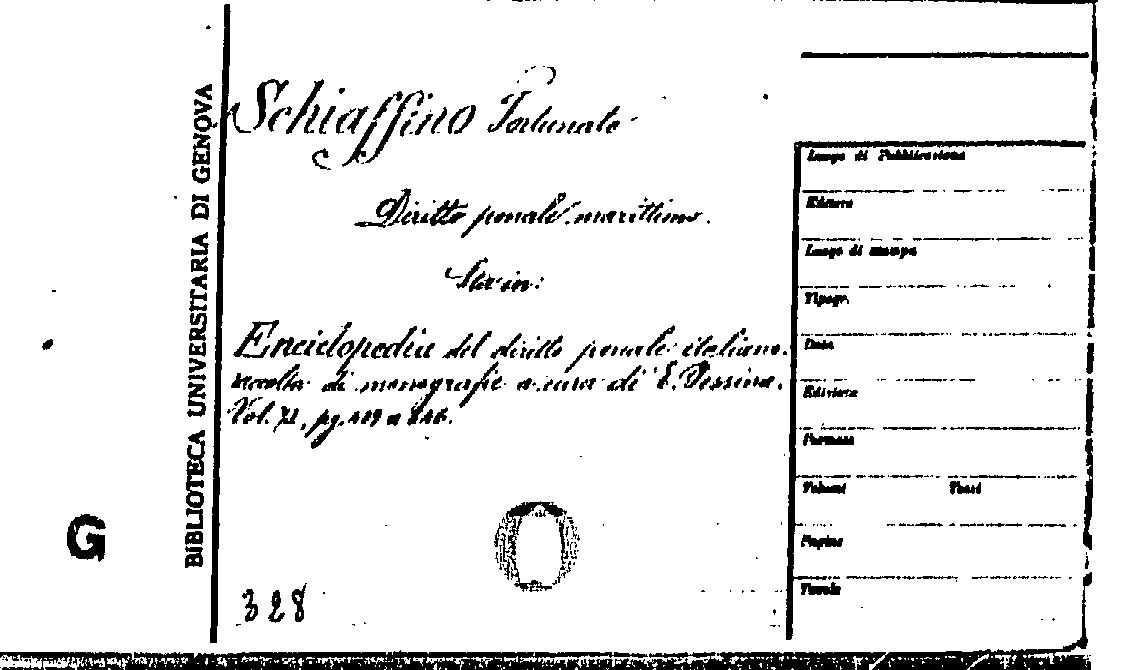 BIBLIOTECA UNIVERSITARIA DI GENOVA
G
Schiaffino Fortunato
Diritto penale marittimo.
Sta in:
Enciclopedia del diritto penale italiano.
raccolta di monografie a cura di E. Pessina.
Vol. XI, pg.
328
Luogo di Pubblicazione
Editore
Luogo di stampa
Tipogr.
Data
Edizione
Formato
Volumi Tomi
Pagine
Tavole